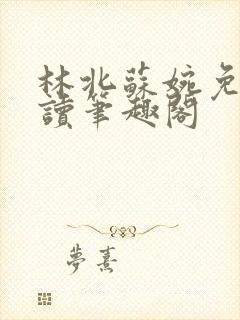 林北蘇婉免
讀筆趣閣
夢熹